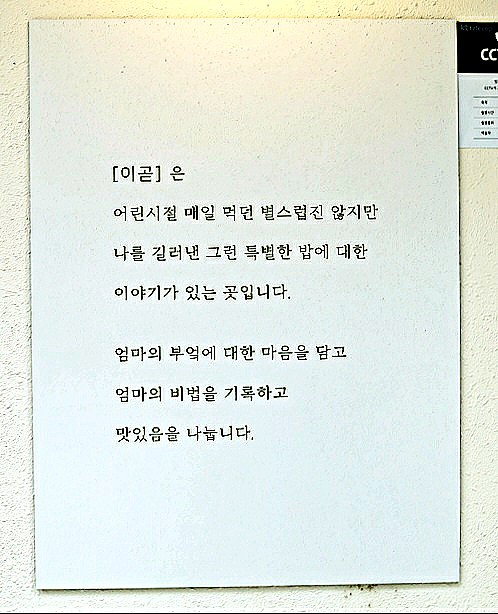 [이곧] 은
어린시절 매일 먹던 별스럽진 않지만
나를 길러낸 그런 특별한 밥에 대한
이야기가 있는 곳입니다.
엄마의 부엌에 대한 마음을 담고
엄마의 비법을 기록하고
맛있음을 나눕니다.
CCT